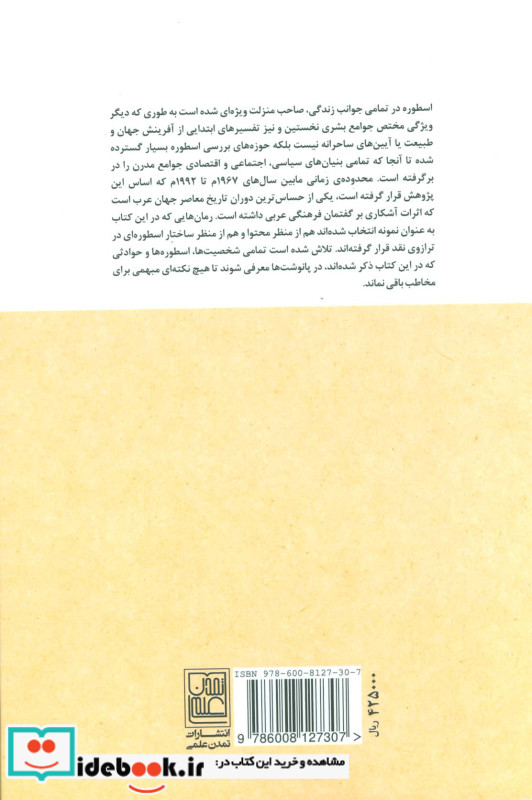 اسطوره در تمامی جوانب زندگی، صاحب منزلت ویژه‌ای شده است به طوری که دیگر
ویژگی مختص جوامع بشری نخستین و نیز تفسیرهای ابتدایی از آفرینش جهان و
طبیعت یا آیین‌های ساحرانه نیست بلکه حوزه‌های بررسی اسطوره بسیار گسترده
شده تا آنجا که تمامی بنیان‌های سیاسی، اجتماعی و اقتصادی جوامع مدرن را در
برگرفته است. محدوده‌ی زمانی مابین سال‌های ۱۹۶۷م تا ۱۹۹۲م که اساس این
پژوهش قرار گرفته است، یکی از حساس‌ترین دوران تاریخ معاصر جهان عرب است
که اثرات آشکاری بر گفتمان فرهنگی عربی داشته است. رمان‌هایی که در این کتاب
به عنوان نمونه انتخاب شده‌اند هم از منظر محتوا و هم از منظر ساختارِ اسطوره‌ای در
ترازوی نقد قرار گرفته‌اند. تلاش شده است تمامی شخصیت‌ها، اسطوره‌ها و حوادثی
که در این کتاب ذکر شده‌اند، در پانوشت‌ها معرفی شوند تا هیچ نکته‌ای مبهمی برای
مخاطب باقی نماند.
ISBN 978-600-8127-30-7
9 786008 127307 >
۴۲۵۰۰۰ ریال
تمدن علمی
انتشارات
تمدن علمی
مشاهده و خرید این کتاب در:
idebook.ir